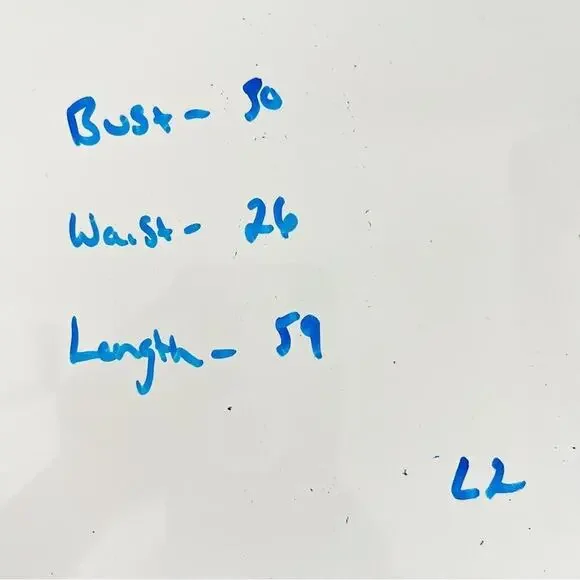 Bust - 30
Waist - 26
Length - 59
L2